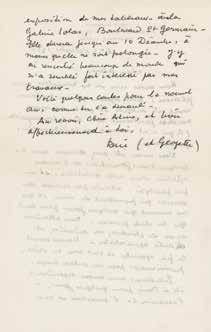 exposition de mes tableaux à la
Galerie Iolas, Boulevard St Germain.
Elle durera jusqu'au 10 Décembre, à
moins qu'elle ne soit prolongée. J'y
ai rencontré beaucoup de monde qui
m'a semblé fort intéressé par mes
travaux.
Voilà quelques cartes pour le nouvel
an, comme tu l'as demandé.
Au revoir, Chère Amie, et bien
affectueusement à toi,
(et Georgette)